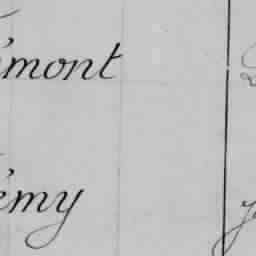 émont
émy